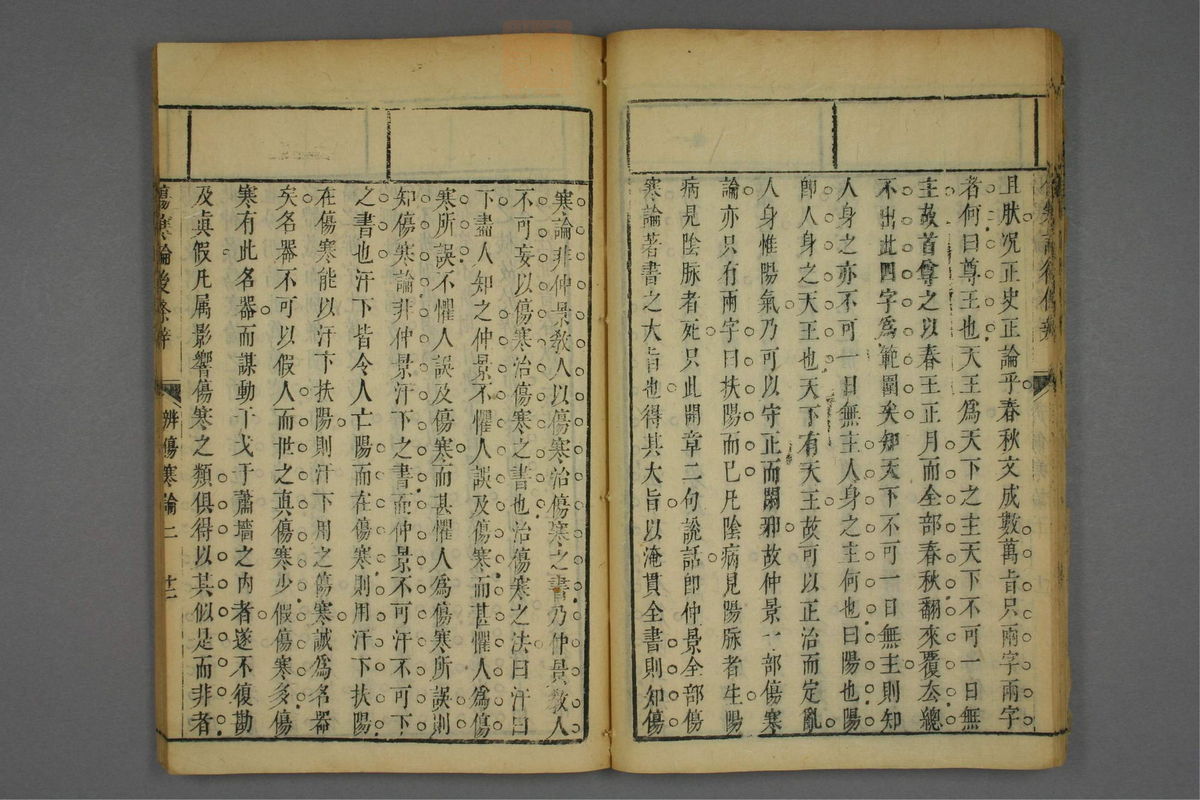 且肤况正史正論乎春秋文成數萬旨只兩字兩字
者何曰尊王也天王爲天下之主天下不可一日無
主故首尊之以春王正月而全部春秋翻來覆去總
不出此四字爲範圍矣知天下不可一日無主則知
人身之亦不可一日無主人身之主何也曰陽也陽
卽人身之天王也天下有天王故可以正治而定亂
人身惟陽氣乃可以守正而闢邪故仲景一部傷寒
論亦只有兩字曰扶陽而已凡陰病見陽脉者生陽
病見陰脉者死只此開章二句說話卽仲景全部傷
寒論著書之大旨也得其大旨以淹貫全書則知傷
寒論非仲景敎人以傷寒治傷寒之書乃仲景敎人
不可妄以傷寒治傷寒之書也治傷寒之法曰汗曰
下盡人知之仲景不懼人誤及傷寒而甚懼人爲傷
寒所誤不懼人誤及傷寒而甚懼人爲傷寒所誤則
知傷寒論非仲景汗下之書而仲景不可汗不可下
之書也汗下皆令人亡陽而在傷寒則用汗下扶陽
在傷寒能以汗下扶陽則汗下用之傷寒誠爲名器
矣名器不可以假人而世之真傷寒少假傷寒多傷
寒有此名器而謀動干戈于蕭墻之內者遂不復勘
及真假凡属影響傷寒之類俱得以其似是而非者
傷寒論後 辨傷寒論二 十二